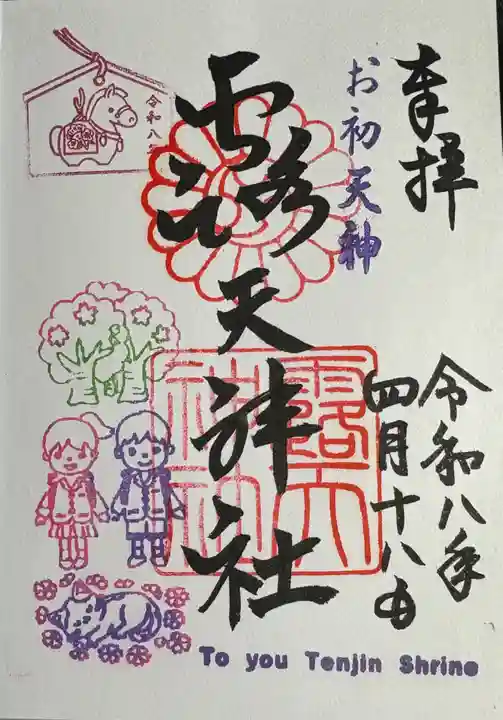 奉拝
お初天神
露天神社
令和八年
四月十八日
令和八年
露天
神社
To you Tenjin Shrine